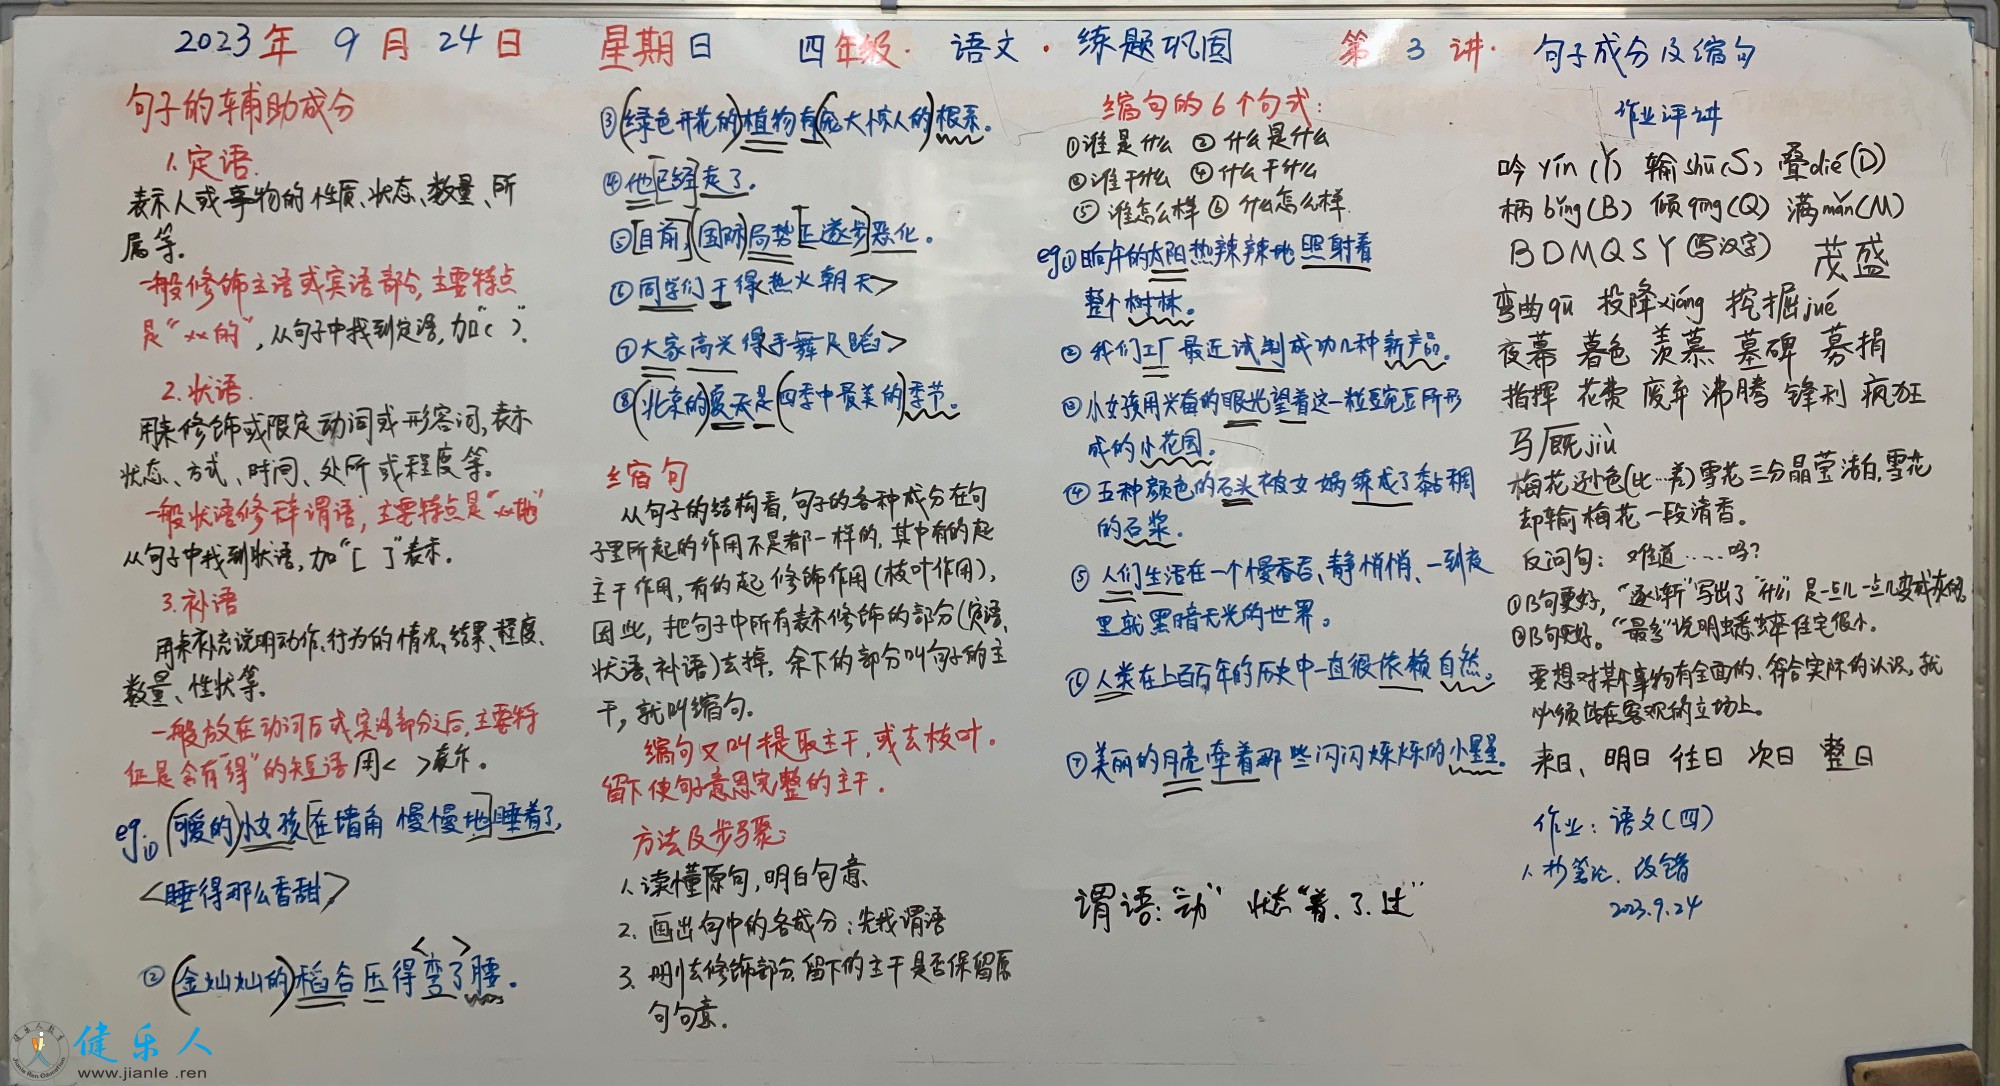 2023年 9月 24日 星期日 四年级· 语文·练题巩固 第3讲· 句子成分及缩句
句子的辅助成分
1.定语.
表示人或事物的性质、状态、数量、所
属等。
一般修饰主语或宾语部分,主要特点
是“xx的”,从句子中找到定语,加“( )”.
2.状语.
用来修饰或限定动词或形容词,表示
状态、方式、时间、处所或程度等。
一般状语修饰谓语,主要特点是“xx地”
从句子中找到状语,加“[ ]”表示.
3.补语
用来补充说明动作、行为的情况、结果、程度、
数量、性状等。
一般放在动词后或宾语部分之后,主要特
征是含有“得”的短语 用< >表示。
eg.① (可爱的)小女孩[在墙角慢慢地]睡着了,
<睡得那么香甜>
< >
②(金灿灿的)稻谷压得弯了腰.
③(绿色开花的)植物有(庞大惊人的)根系。
④他[已经]走了.
⑤[目前],(国际)局势[正逐步]恶化。
⑥同学们干得热火朝天>
⑦大家高兴得手舞足蹈>
⑧(北京的)夏天是(四季中最美的)季节。
缩句
从句子的结构看,句子的各种成分在句
子里所起的作用不是都一样的,其中有的起
主干作用,有的起修饰作用(枝叶作用),
因此,把句子中所有表示修饰的部分(定语、
状语、补语)去掉,余下的部分叫句子的主
干,就叫缩句.
缩句又叫提取主干,或去枝叶.
留下使句子意思完整的主干.
方法及步骤:
1、读懂原句,明白句意、
2、画出句中的各成分:先找谓语
3、删去修饰部分,留下的主干是否保留原
句句意.
缩句的6个句式:
①谁是什么 ②什么是什么
③谁干什么 ④什么干什么
⑤谁怎么样 ⑥什么怎么样
eg.①晌午的太阳热辣辣地照射着
整个树林。
②我们工厂最近试制成功几种新产品。
③小女孩用兴奋的眼光望着这一粒豌豆所形
成的小花园.
④五种颜色的石头被女娲炼成了黏稠
的石浆.
⑤人们生活在一个慢吞吞、静悄悄、一到夜
里就黑暗无光的世界。
⑥人类在上百万年的历史中一直很依赖自然。
⑦美丽的月亮牵着那些闪闪烁烁的小星星.
谓语:“动” 状态“着、了、过”
作业评讲
吟yín(Y) 输shū(S) 叠dié(D)
柄bǐng(B) 倾qīng(Q) 满mǎn(M)
BDMQSY(写汉字) 茂盛
弯曲qū 投降xiáng 挖掘jué
夜幕 暮色 羡慕 墓碑 募捐
指挥 花费 废弃 沸腾 锋利 疯狂
马厩jiù
梅花逊色(比…差)雪花三分晶莹洁白,雪花
却输梅花一段清香。
反问句: 难道……吗?
①B句更好,“逐渐”写出了
②B句更好。“最多”说明蟋蟀住宅很小.
要想对某个事物有全面的、符合实际的认识,就
必须站在客观的立场上.
来日、明日 往日 次日 整日
作业: 语文(四)
1、抄笔记、改错
2023.9.24
健乐人
www.jianle.ren